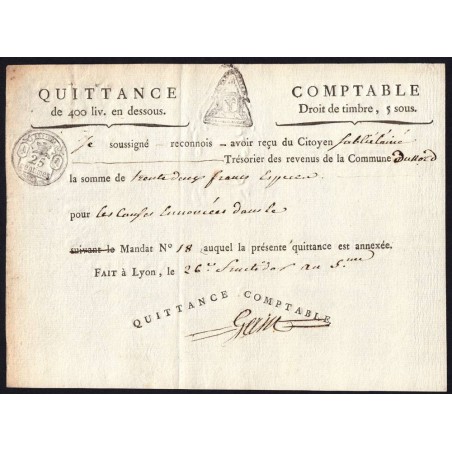 QUITTANCE
de 400 liv. en dessous.
COMPTABLE
Droit de timbre, 5 sous.
Je soussigné reconnois avoir reçu du Citoyen
Trésorier des revenus de la Commune Du Nord
la somme de trente deux francs Espece
pour les Causes Ennoncées dans le
suivant le Mandat N° 18 auquel la présente quittance est annexée.
FAIT à Lyon, le 26e. fructidor an 5.me
QUITTANCE COMPTABLE
25